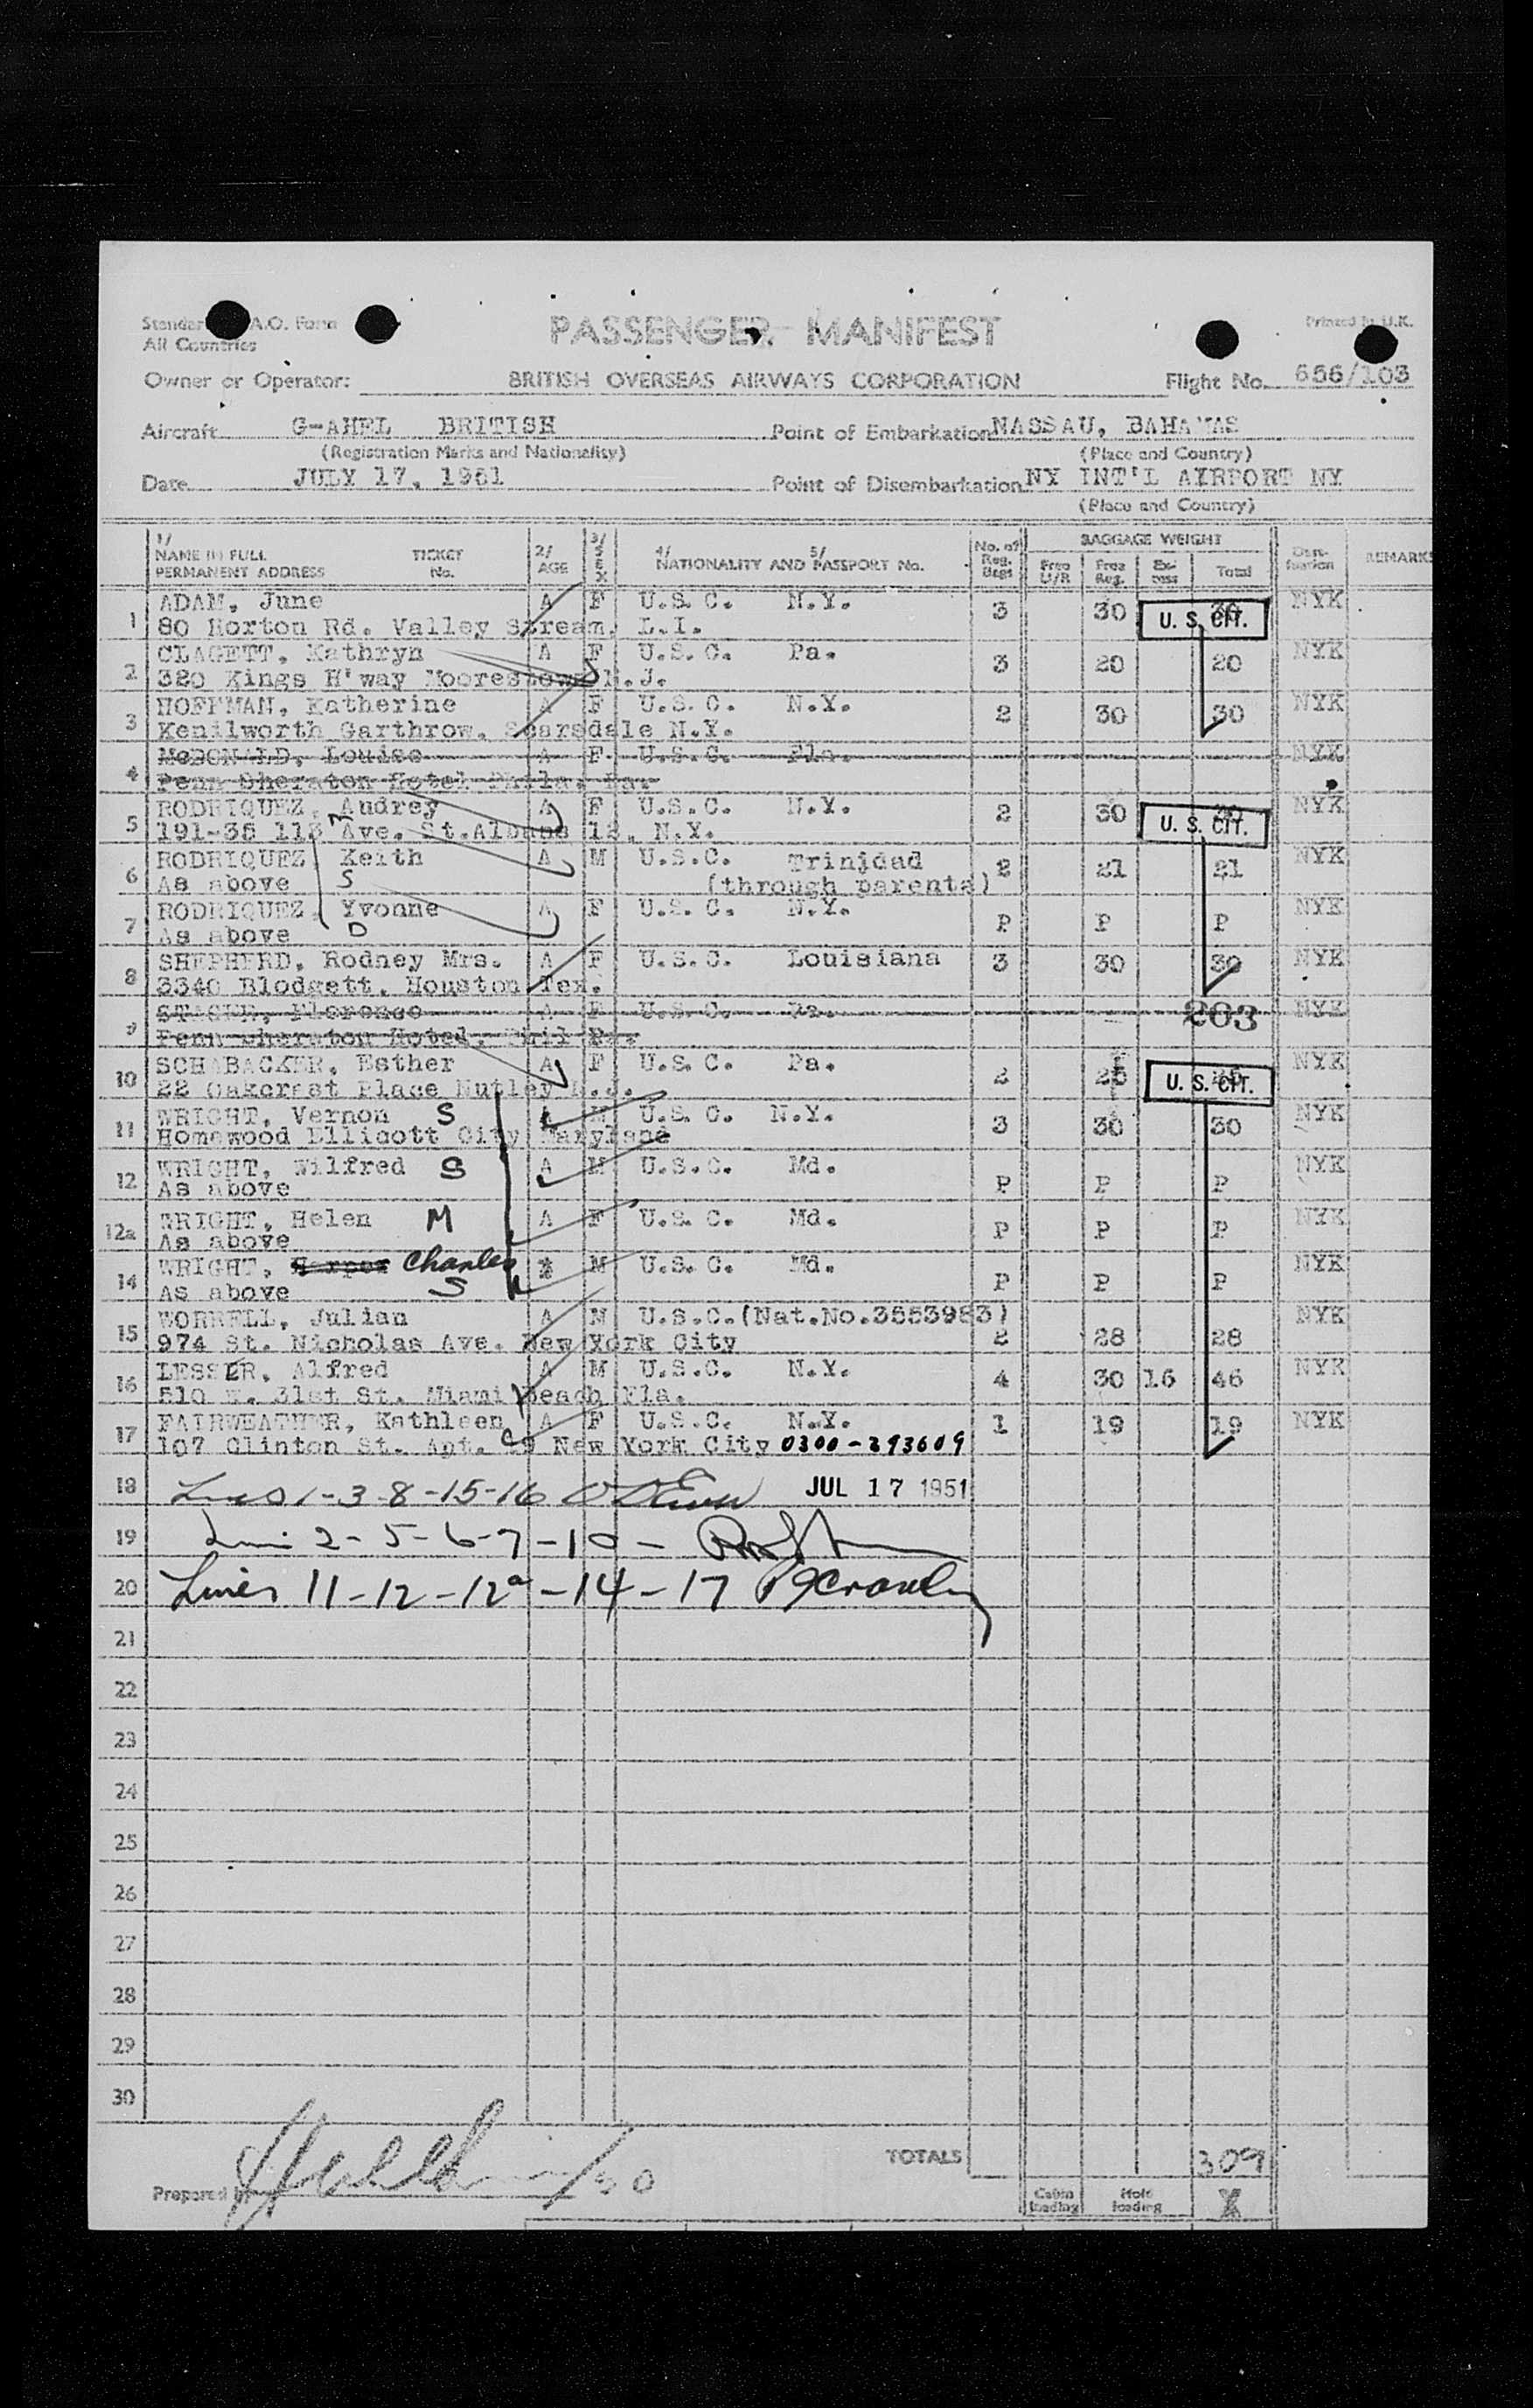 Standar A.O. Form
All Countries
PASSENGER MANIFEST
Printed in U.K.
Owner or Operator: BRITISH OVERSEAS AIRWAYS CORPORATION Flight No. 656/103
Aircraft G-AHEL BRITISH Point of Embarkation NASSAU, BAHAMAS
(Registration Marks and Nationality) (Place and Country)
Date JULY 17, 1951 Point of Disembarkation NY INT'L AIRPORT NY
(Place and Country)
1/ NAME IN FULL PERMANENT ADDRESS TICKET No. 2/ AGE 3/ SEX 4/ NATIONALITY AND 5/ PASSPORT No. No. of Reg. Bags BAGGAGE WEIGHT Free U/R Free Reg. Excess Total Destination REMARKS
1 ADAM, June A F U.S.C. N.Y. 3 30 30 NYK
80 Horton Rd. Valley Stream, L.I. U. S. CIT.
2 CLAGETT, Kathryn A F U.S.C. Pa. 3 20 20 NYK
320 Kings H'way Moorestown N.J.
3 HOFFMAN, Katherine A F U.S.C. N.Y. 2 30 30 NYK
Kenilworth Garthrow, Scarsdale N.Y.
4 McDONALD, Louise A F U.S.C. Pa. NYK
Penn Sheraton Hotel Phila. Pa.
5 RODRIQUEZ, Audrey A F U.S.C. N.Y. 2 30 NYK
191-35 113 Ave. St.Albans 12, N.Y. M U. S. CIT.
6 RODRIQUEZ, Keith A M U.S.C. Trinidad 2 21 21 NYK
As above S (through parents)
7 RODRIQUEZ, Yvonne A F U.S.C. N.Y. P P P NYK
As above D
8 SHEPHERD, Rodney Mrs. A F U.S.C. Louisiana 3 30 30 NYK
3340 Blodgett, Houston Tex.
9 Florence A F U.S.C. Pa. 203 NYK
Penn Sheraton Hotel, Phil Pa.
10 SCHABACKER, Esther A F U.S.C. Pa. 2 25 25 NYK
22 Oakcrest Place Nutley N.J. U. S. CIT.
11 WRIGHT, Vernon S A M U.S.C. N.Y. 3 30 30 NYK
Homewood Ellicott City Maryland
12 WRIGHT, Wilfred S A M U.S.C. Md. P P P NYK
As above
12a WRIGHT, Helen M A F U.S.C. Md. P P P NYK
As above
14 WRIGHT, Harper Charles M U.S.C. Md. P P P NYK
As above S
15 WORRELL, Julian A M U.S.C.(Nat.No.3553983) 2 28 28 NYK
974 St. Nicholas Ave. New York City
16 LESSER, Alfred A M U.S.C. N.Y. 4 30 16 46 NYK
510 W. 31st St. Miami Beach Fla.
17 FAIRWEATHER, Kathleen A F U.S.C. N.Y. 1 19 19 NYK
107 Clinton St. Apt. C9 New York City 0300-293609
18 Lines 1-3-8-15-16 JUL 17 1951
19 Line 2-5-6-7-10-
20 Lines 11-12-12a-14-17
21
22
23
24
25
26
27
28
29
30
TOTALS 309
Prepared by
Cabin loading Hold loading X